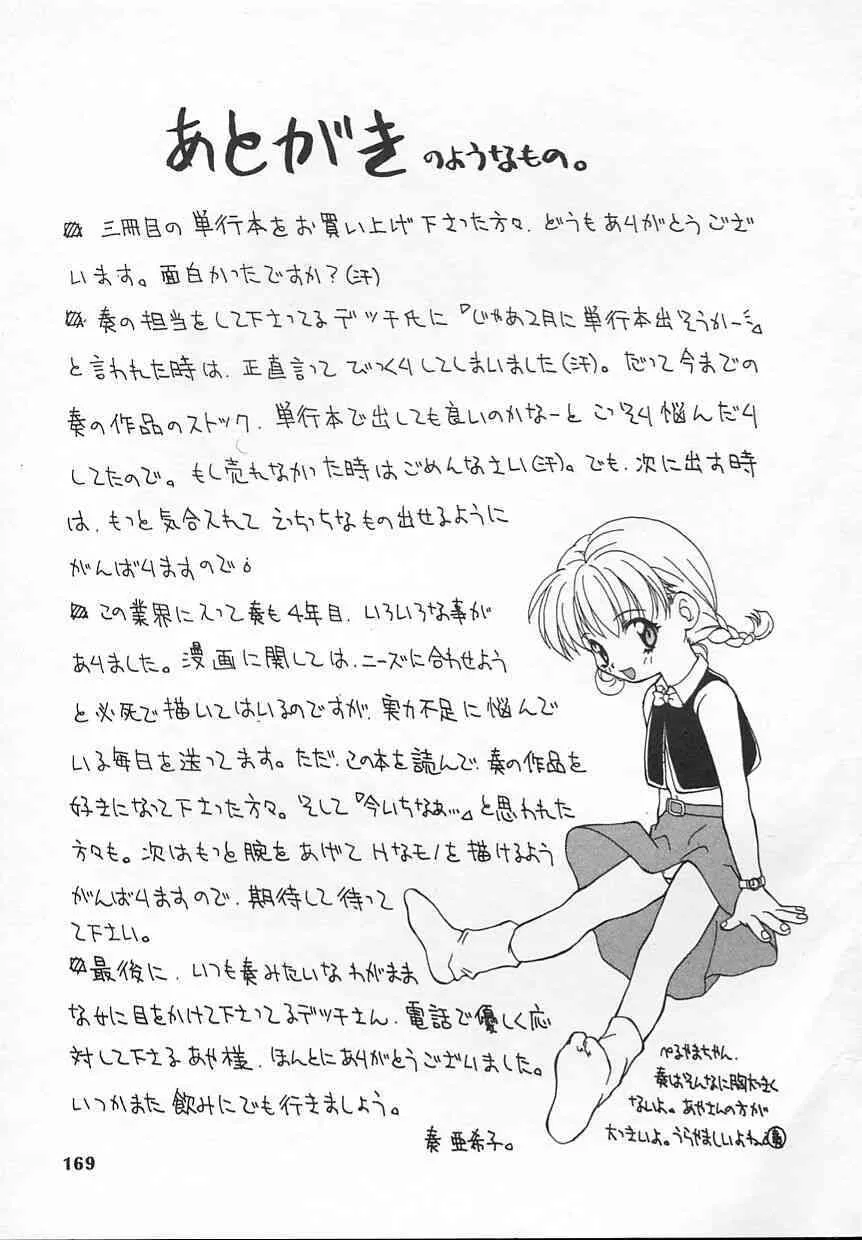 あとがきのようなもの。
三冊目の単行本をお買い上げ下さった方々、どうもありがとうござ
います。面白かったですか？(汗)
奏の担当をして下さってるデッチ氏に『じゃあ2月に単行本出そうかー』
と言われた時は、正直言ってびっくりしてしまいました(汗)。だって今までの
奏の作品のストック、単行本で出しても良いのかなーとこっそり悩んだり
してたので。もし売れなかった時はごめんなさい(汗)。でも、次に出す時
は、もっと気合入れてえっちっちなもの出せるように
がんばりますので。
この業界に入って奏も4年目、いろいろな事が
ありました。漫画に関しては、ニーズに合わせよう
と必死で描いてはいるのですが、実力不足に悩んで
いる毎日を送ってます。ただ、この本を読んで、奏の作品を
好きになって下さった方々。そして『今いちなぁ…』と思われた
方々も。次はもっと腕をあげてHなモノを描けるよう
がんばりますので、期待して待って
て下さい。
最後に、いつも奏みたいなわがまま
な女に目をかけて下さってるデッチさん、電話で優しく応
対して下さるあや様、ほんとにありがとうございました。
いつかまた飲みにでも行きましょう。
奏 亜希子。
ぺるやまちゃん、
奏はそんなに胸大きく
ないよ。あやさんの方が
大っきいよ。うらやましいよね。
169